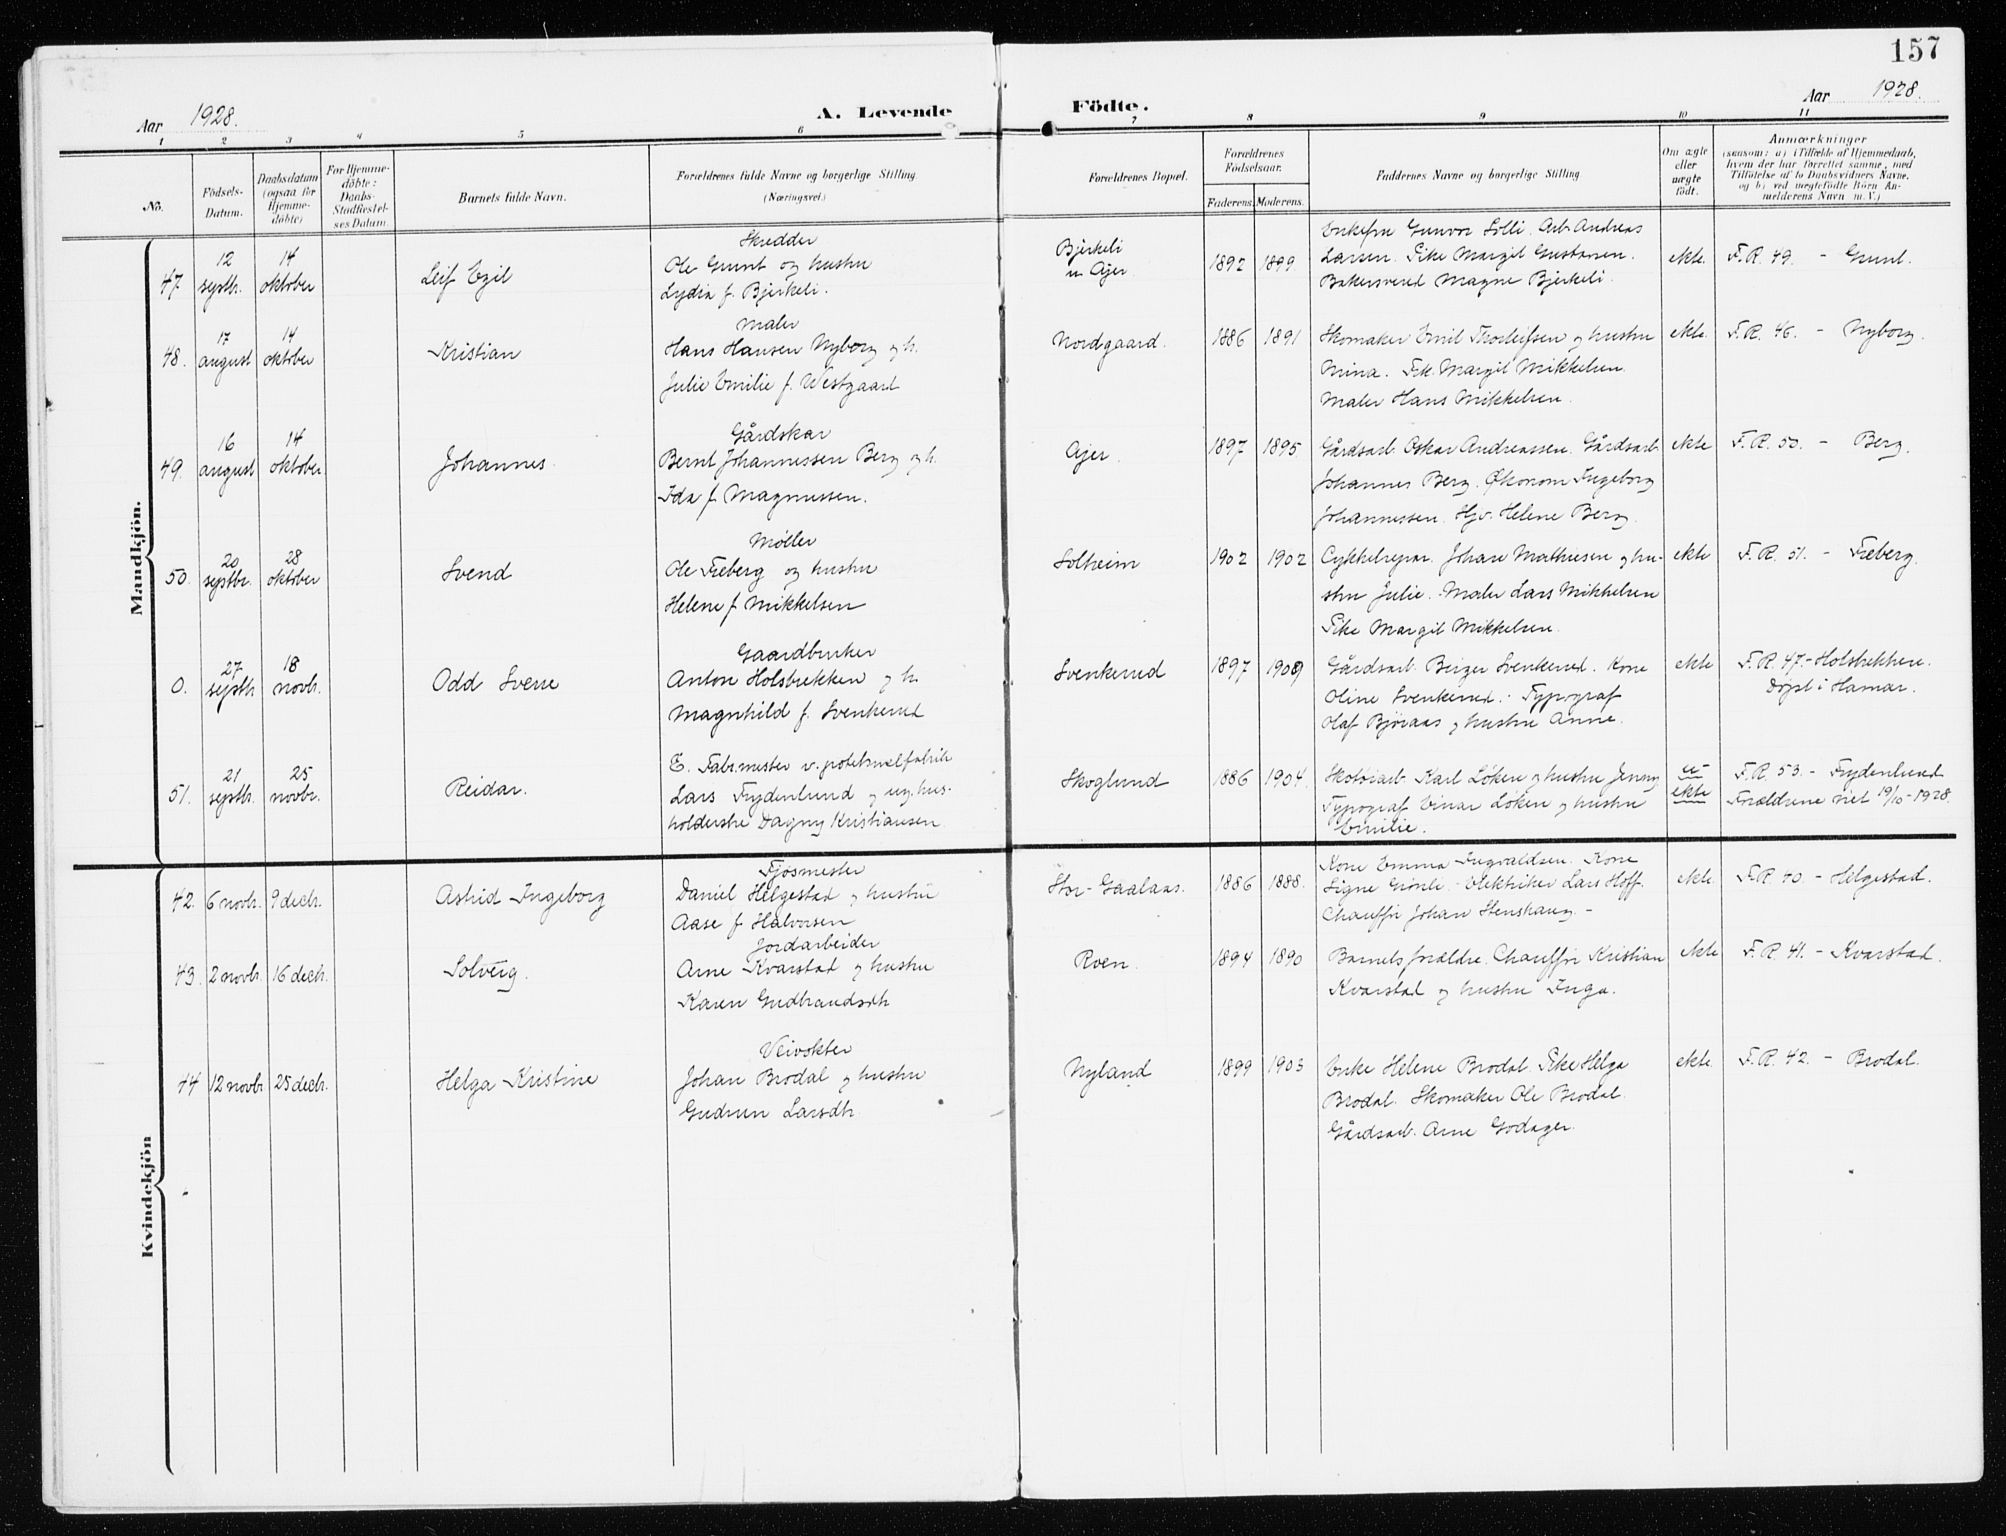 157
Aar 1928.
A. Levende Födte.
Aar 1928.
1 2 3 4 5 6 7 8 9 10 11
No.
Födsels-
Datum.
Daabsdatum
(ogsaa for
Hjemme-
döbte)
For Hjemme-
döbte:
Daabs-
Stadfæstel-
ses Datum.
Barnets fulde Navn.
Forældrenes fulde Navne og borgerlige Stilling
(Næringsvei.)
Forældrenes Bopæl.
Forældrenes
Födselsaar.
Faderens. Moderens.
Faddernes Navne og borgerlige Stilling
Om ægte
eller
uægte
födt.
Anmærkninger
(saasom: a) i Tilfælde af Hjemmedaab,
hvem der har forrettet samme, med
Tilföielse af to Daabsvidners Navne,
og b) ved uægtefödte Börn An-
melderens Navn m. V.)
Mandkjön.
47. 12 septb. 14 oktober
Leif Egil
Skrædder
Ole Grunt og hustru
Lydia f. Bjerkeli.
Bjerkeli
u Ajer
1892 1899
Enkefru Gunvor Solli. Arb. Andreas
Larsen. Pike Margit Gustavsen.
Bakersvend Magne Bjerkeli.
ekte. F.R. 49. - Grunt.
48. 17 august 14 oktober
Kristian
Maler
Hans Hansen Nyborg og h.
Julie Emilie f. Westgaard
Nordgaard.
1886 1891
Skomaker Emil Thorleifsen og hustru
Mina. Pik. Margit Mikkelsen.
Maler Hans Mikkelsen.
ekte. F.R. 46. - Nyborg.
49. 16 august 14 oktober.
Johannes.
Gårdskar
Bernt Johannessen Berg og h.
Ida f. Magnussen.
Ajer.
1897 1895
Gårdsarb. Oskar Andreassen. Gårdsarb.
Johannes Berg. Økonom Ingeborg
Johannessen. Hjv. Helene Berg.
ekte F.R. 50. - Berg.
50. 20 septbr. 28 oktober
Svend
Møller
Ole Freberg og hustru
Helene f. Mikkelsen
Solheim
1902 1902
Cykkelrepar. Johan Mathiesen og hu-
stru Julie. Maler Lars Mikkelsen
Pike Margit Mikkelsen.
ekte F.R. 51. - Freberg.
0. 27 septbr 18 novbr.
Odd Sverre
Gaardbruker
Anton Holsbrekken og h.
Magnhild f. Svenkerud
Svenkerud
1897 1909
Gårdsarb. Birger Svenkerud. Kone
Oline Svenkerud. Typograf
Olaf Bjøraas og hustru Anne.
ekte F.R. 47. - Holsbekken.
Døpt i Hamar.
51. 21 septbr. 25 novbr.
Reidar.
E. Fabr.mester v. potetmelfabrik
Lars Frydenlund og ug. hus-
holderske Dagny Kristiansen.
Skoglund
1886 1904.
Skotøiarb. Karl Løken og hustru Jenny
Typograf Einar Løken og hustru
Emilie.
u-
ekte
F.R. 53. - Frydenlund
Forældrene viet 19/10-1928.
Kvindekjön
42. 6 novb. 9 decbr.
Astrid Ingeborg
Fjøsmester
Daniel Helgestad og hustru
Aase f. Halvorsen
Stor-Gaalaas.
1886 1888.
Kone Emma Ingvaldsen. Kone
Signe Grönli. - Elektriker Lars Hoff.
Chauffør Johan Stenshaug. -
ekte. F.R. 40. - Helgestad.
43. 2 novb. 16 decb.
Solveig.
Jordarbeider
Arne Kvarstad og hustru
Karen Gudbrandsdtr.
Roen.
1894 1890
Barnets forældre. Chauffør Kristian
Kvarstad og hustru Inga.
ekte F.R. 41. - Kvarstad.
44 12 novbr 25 decbr.
Helga Kristine
Veivokter
Johan Brodal og hustru
Gudrun Larsdtr.
Nyland
1899 1903
Enke Helene Brodal. Pike Helga
Brodal. Skomaker Ole Brodal.
Gårdsarb. Arne Godager.
ekte. F.R. 42. - Brodal.